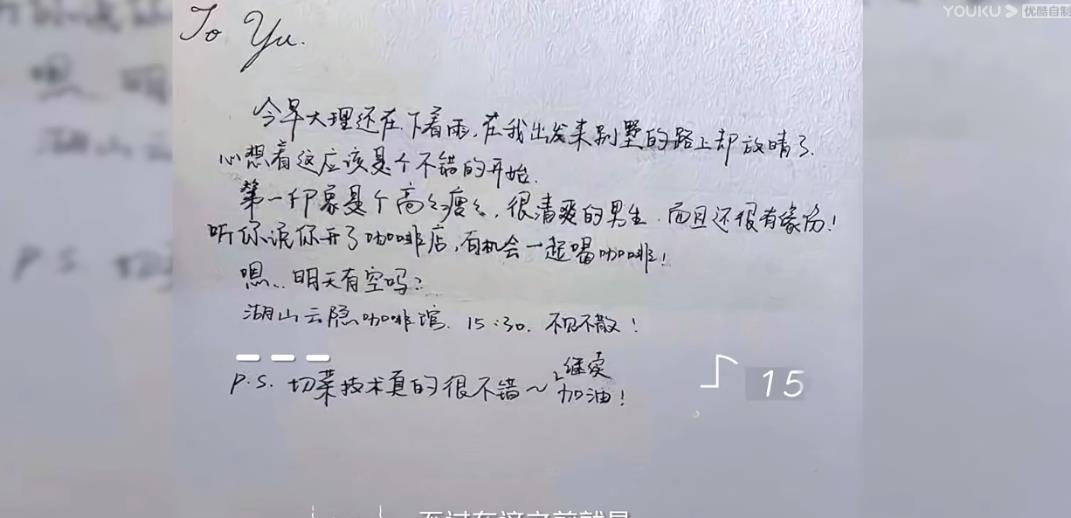 YOUKU 优酷自制
To Yu.
今早大理还在下着雨,在我出发来别墅的路上却放晴了.
心想着这应该是个不错的开始.
第一印象是个高高瘦瘦,很清爽的男生.而且还很有缘份!
听你说你开了咖啡店,有机会一起喝咖啡!
嗯...明天有空吗?
湖山云隐咖啡馆. 15:30. 不见不散!
P.S. 切菜技术真的很不错~继续加油!
15